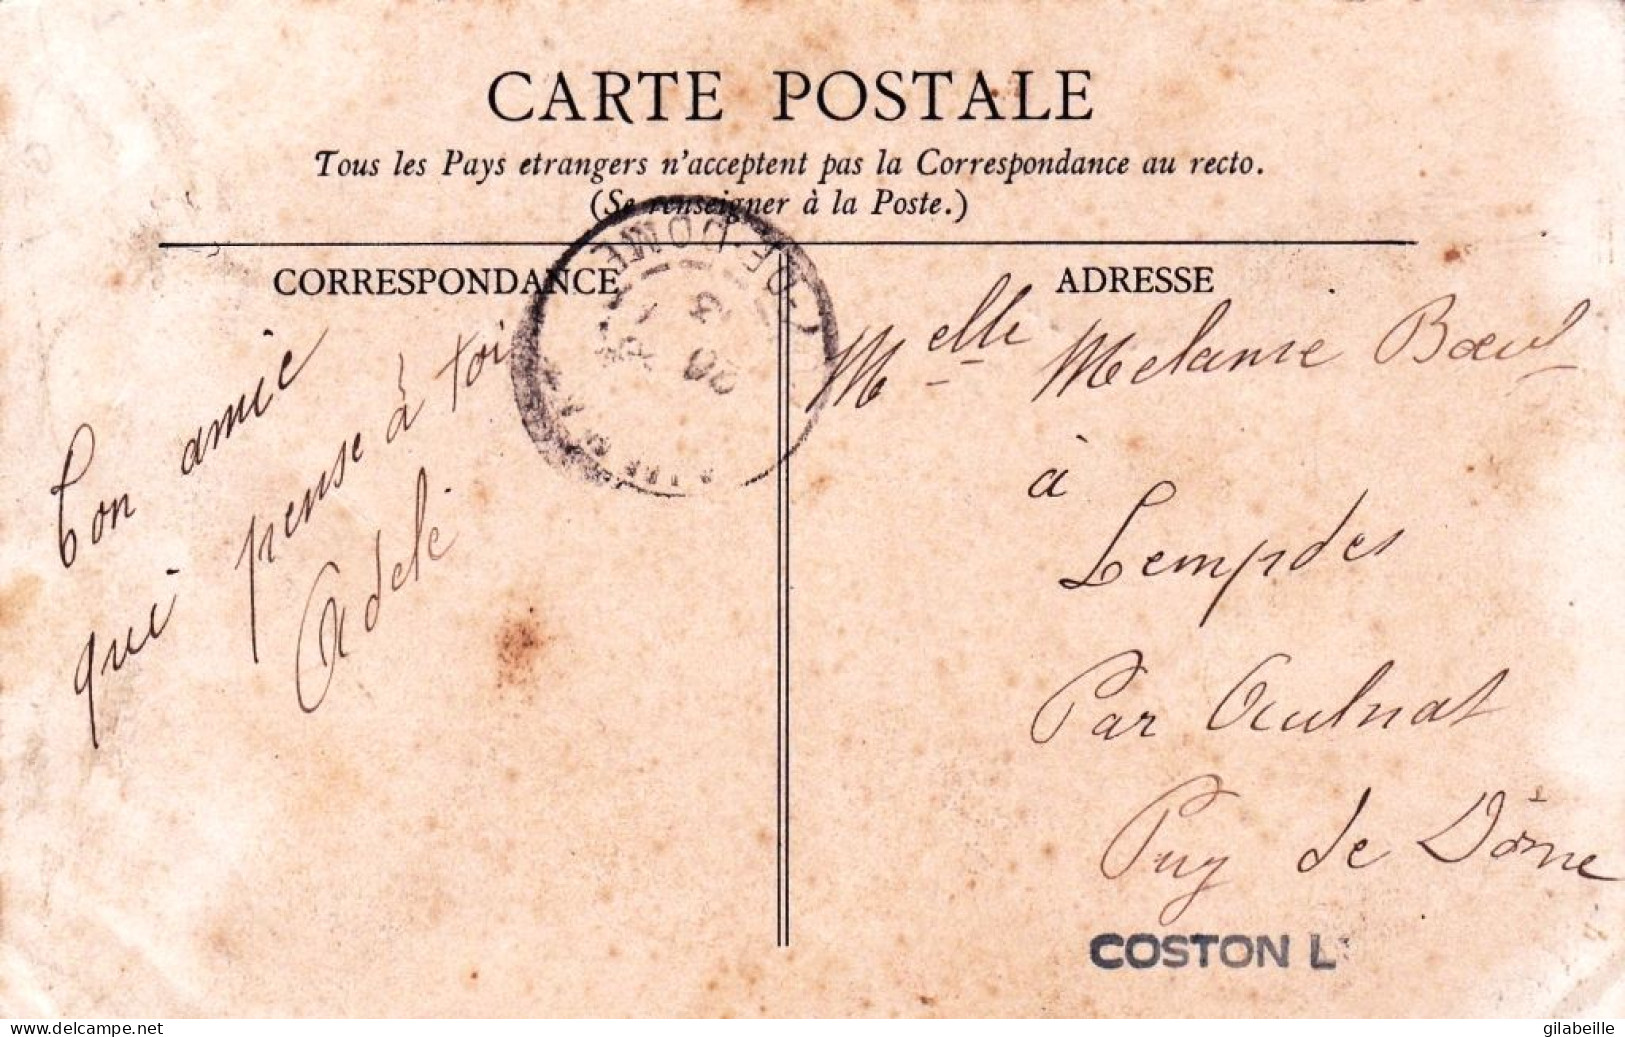 CARTE POSTALE
Tous les Pays etrangers n'acceptent pas la Correspondance au recto.
(Se renseigner à la Poste.)
CORRESPONDANCE
Ton amie
qui pense à toi
Adele
ADRESSE
Melle Melanie
à
Lempdes
Par Aulnat
Puy de Dôme
COSTON L
PUY-DE-DOME
20
delcampe.net
gilabeille